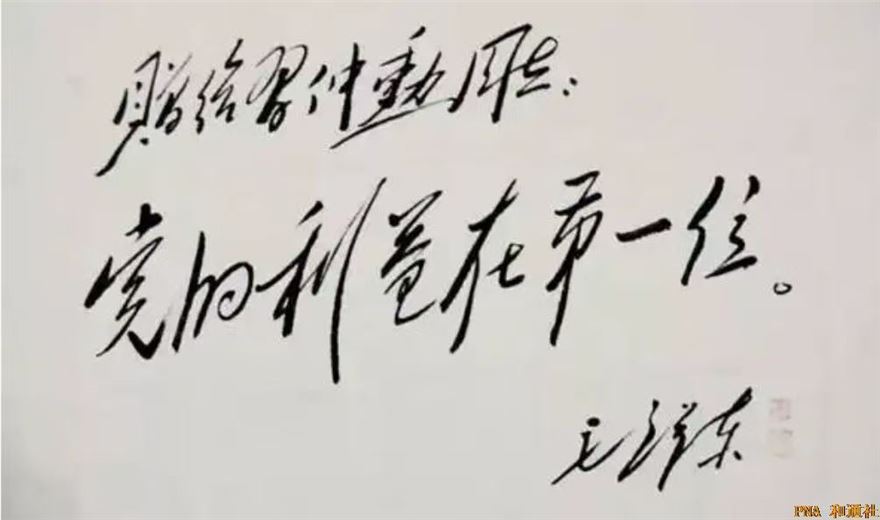 赠给習仲勳同志：
党的利益在第一位。
毛泽东
PNA 和通社